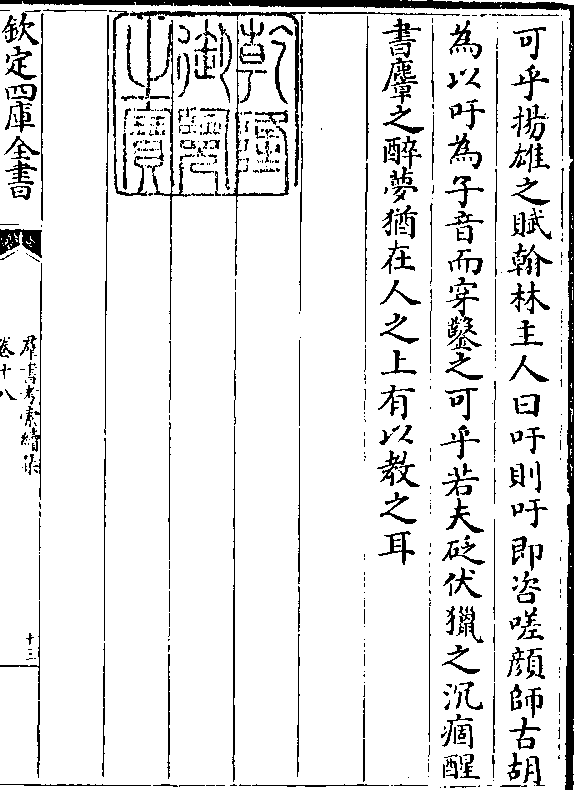 可乎揚雄之賦翰林主人曰吁則吁即咨嗟顔師古胡
為以吁為于音而穿鑿之可乎若夫砭伏獵之沉痼醒
書麞之醉夢猶在人之上有以教之耳
乾隆
御覽
之寶
欽定四庫全書
羣書考索續集
卷十八
十三